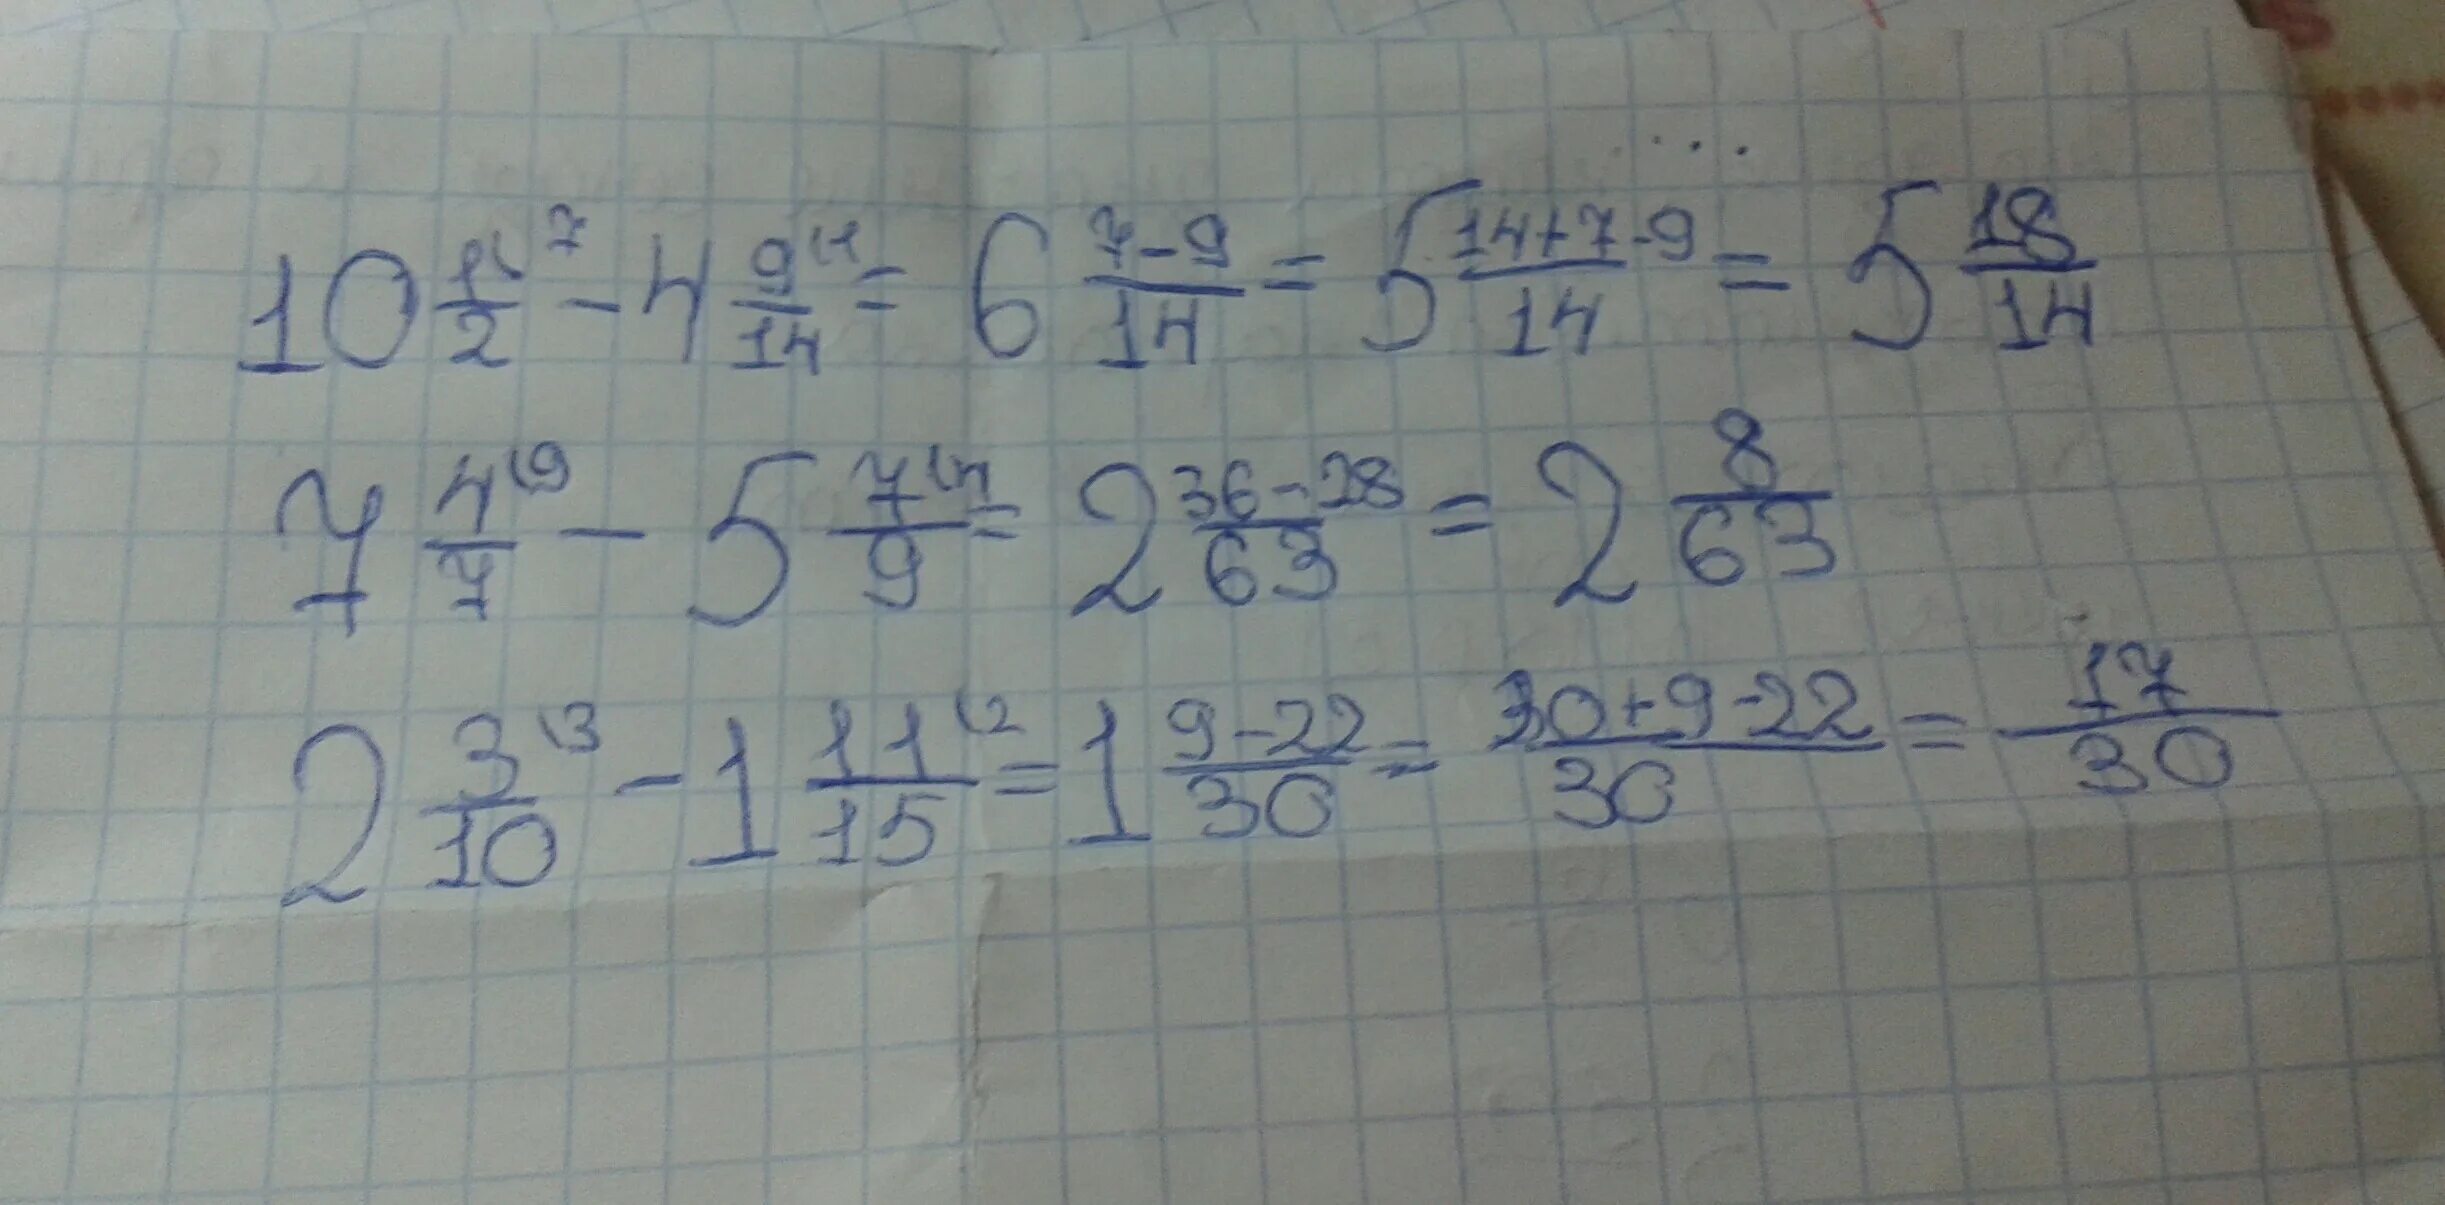 10 1\7/2 - 4 9\1/14 = 6 7-9/14 = 5 14+7-9/14 = 5 18/14
7 4\9/7 - 5 7\7/9 = 2 36-28/63 = 2 8/63
2 3\3/10 - 1 11\2/15 = 1 9-22/30 = 30+9-22/30 = 17/30